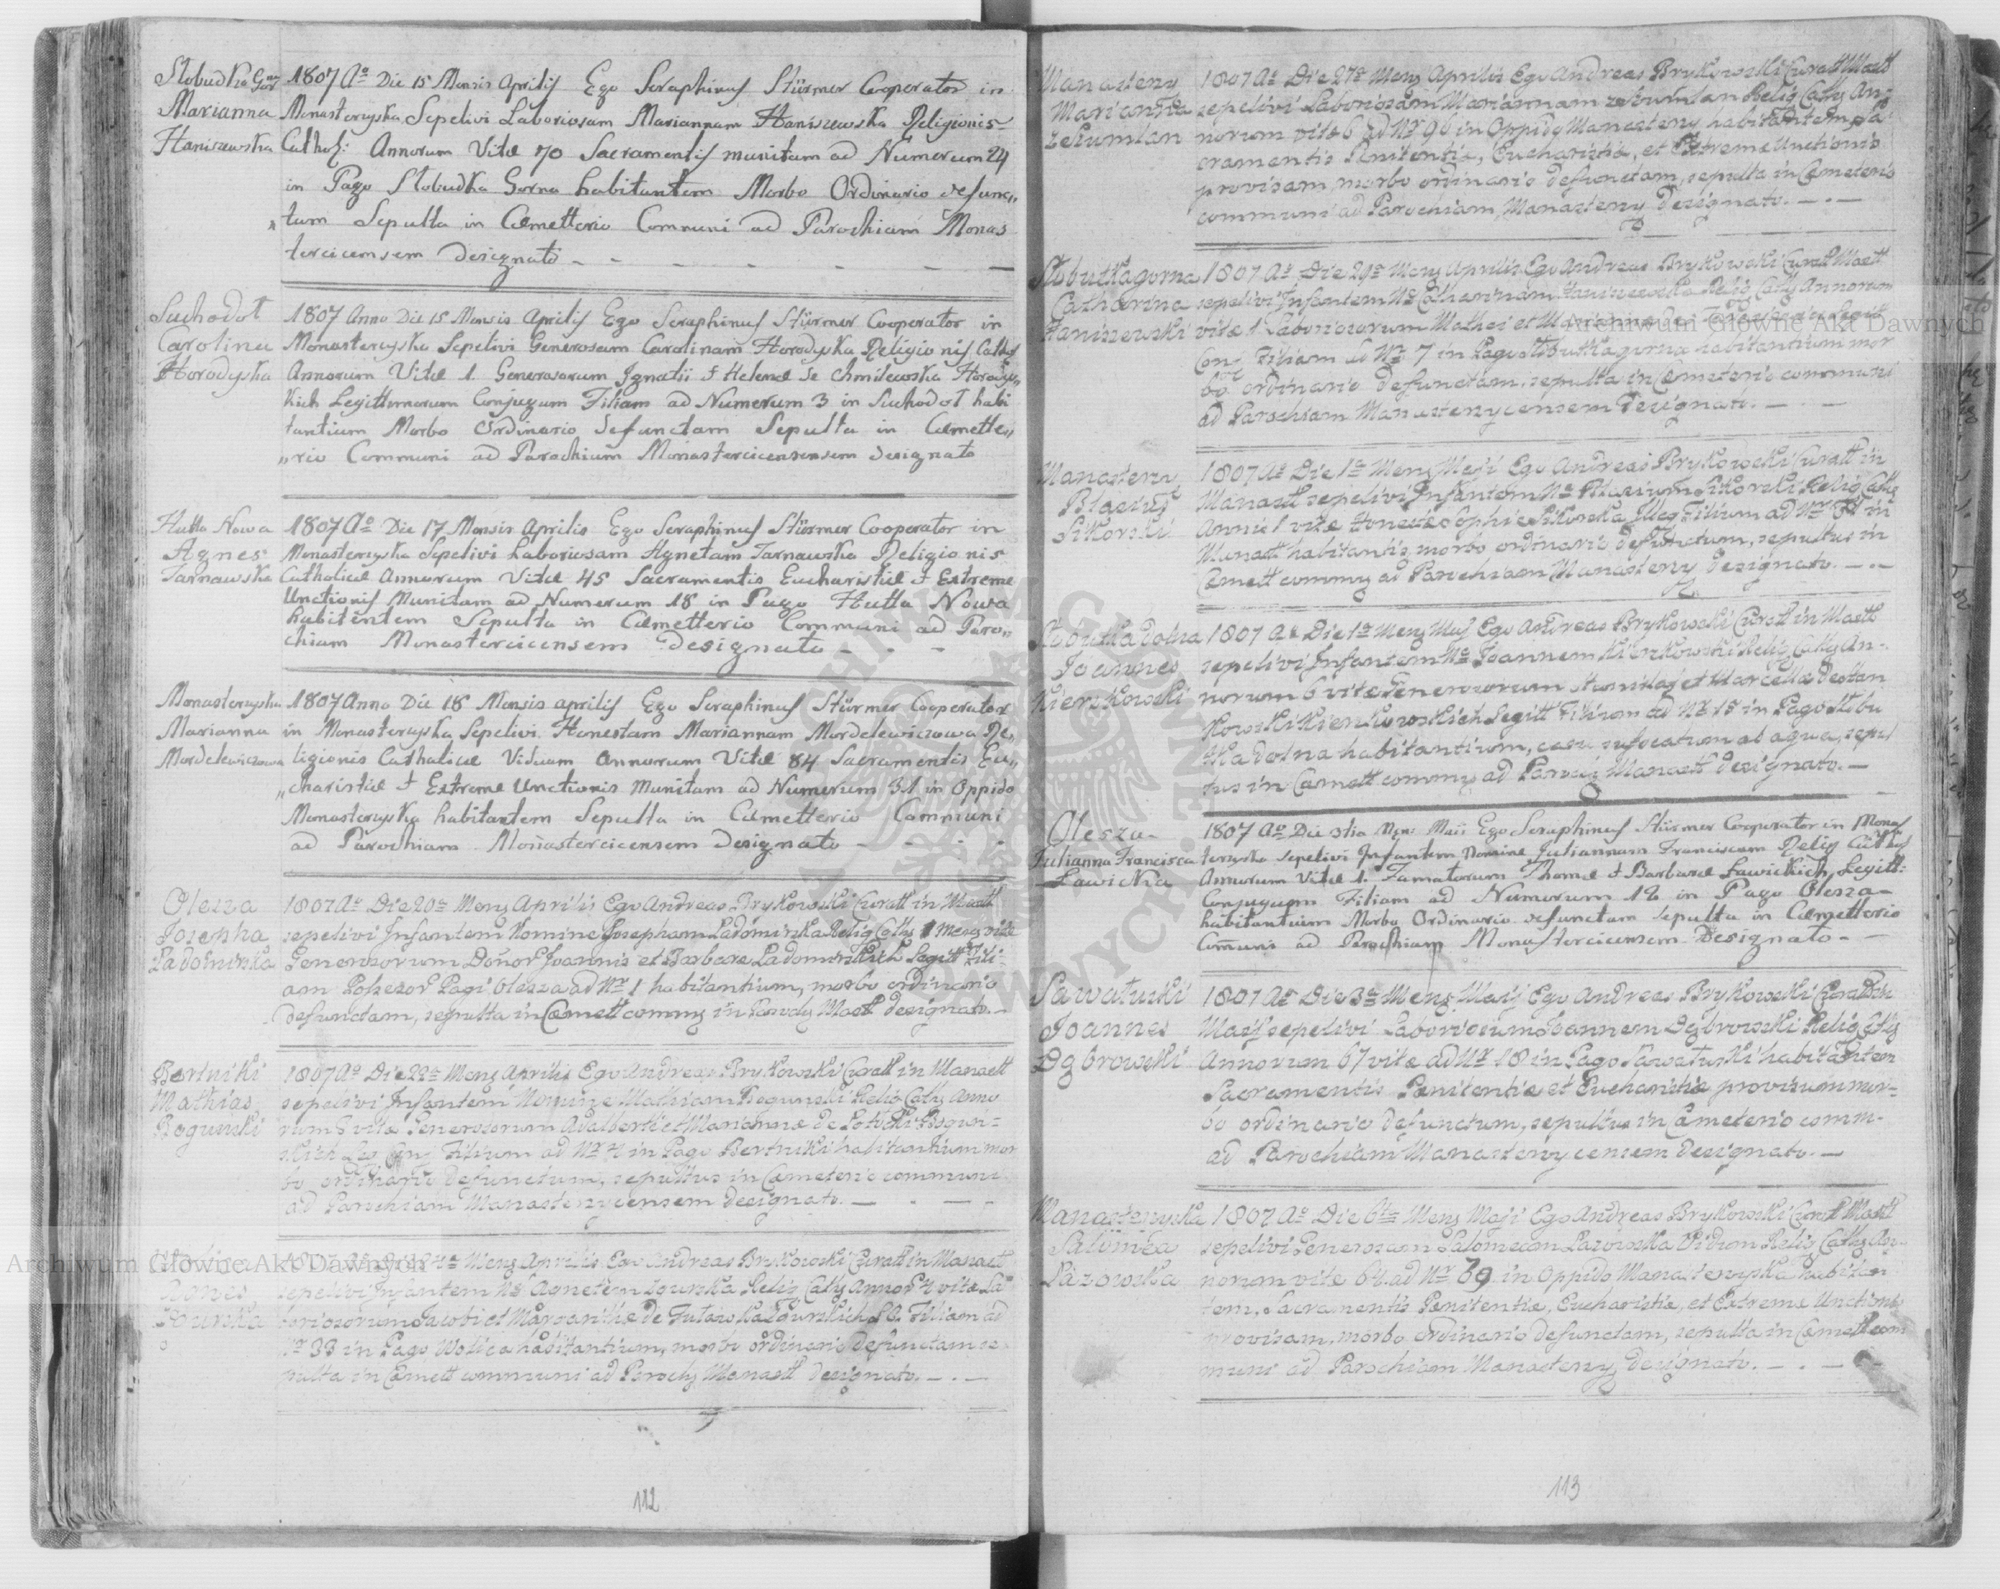 Slobudka Gor
Marianna
Haniszewska
1807 Ao Die 15 Mensis Aprilis Ego Seraphinus Stürmer Cooperator in
Monasterzyska Sepelivi Laboriosam Mariannam Haniszewska Religionis
Cathol: Annorum Vitæ 70 Sacramentis munitam ad Numerum 24
in Pago Slobudka Gorna habitantem Morbo Ordinario defunc„
„tam Sepulta in Cæmetterio Communi ad Parochiam Monas
tercicensem Designato
Suchodol
Carolina
Horodyska
1807 Anno Die 15 Mensis Aprilis Ego Seraphinus Stürmer Cooperator in
Monasterzyska Sepelivi Generosam Carolinam Horodyska Religionis Cathol
Annorum Vitæ 1. Generosorum Ignatii & Helenæ de Chmilewska Horodys„
kich Legittimorum Conjugum Filiam ad Numerum 3 in Suchodol habi
tantium Morbo Ordinario Defunctam Sepulta in Cæmette„
„rio Communi ad Parochium Monastercicensem designato
Hutta Nowa
Agnes
Tarnawska
1807 Ao Die 17 Mensis Aprilis Ego Seraphinus Stürmer Cooperator in
Monasterzyska Sepelivi Laboriosam Agnetam Tarnawska Religionis
Catholicæ Annorum Vitæ 45 Sacramentis Eucharistiæ & Extreme
Unctionis Munitam ad Numerum 18 in Pago Hutta Nowa
habitentem Sepulta in Cæmetterio Communi ad Paro„
chiam Monastercicensem Designato
Monasterzyska
Marianna
Mordelewiczowa
1807 Anno Die 18 Mensis aprilis Ego Seraphinus Stürmer Cooperator
in Monasterzyska Sepelivi Honestam Mariannam Mordelewiczowa Re„
ligionis Catholicæ Viduam Annorum Vitæ 84 Sacramentis Eu„
„charistiæ & Extreme Unctionis Munitam ad Numerum 31 in Oppido
Monasterzyska habitantem Sepulta in Cæmetterio Communi
ad Parochiam Monastercicensem Designato
Olesza
Josepha
Ladomirska
1807 Ao Die 20ma Mens Aprilis Ego Andreas Brykowski Curatt in Mastt
sepelivi Infantem Nomine Josepham Ladomirska Relig Cathj 1 Mens vitæ
Generosorum Donor Joannis et Barbara Ladomirskich Legitt Fili-
am Posessor Pagi Olesza ad Nr 1 habitantium, morbo ordinario
defunctam, sepulta in Cæmett commy in Parochj Mastt designato.
Bertniki
Mathias
Bogunski
1807 Ao Die 22da Mens Aprilis Ego Andreas Brykowski Curatt in Manastt
sepelivi Infantem Nomine Mathiam Bogunski Relig Cathj Anno
rum vitæ Generosorum Adalberti et Mariannæ de Potucki Bogun-
skich Leg Conj Filium ad Nr 4 in Pago Bertniki habitantium mor
bo ordinario defunctum, sepultus in Cæmeterio communi
ad Parochiam Manasterzycensem designato.
Wolica
Agnes
1807 Ao Mens Aprilis Ego Andreas Brykowski Curatt in Manastt
sepelivi Infantem Ne Agnetem Relig Cathj Annor vitæ La
boriosorum Jacobi et Margarithæ de Filiam ad
Nr 33 in Pago Wolica habitantium, morbo ordinario defunctam se
pulta in Cæmett communi ad Parochj Manastt designato.
112
Manasterzy
Marianna
1807 Ao Die 27ma Mens Aprilis Ego Andreas Brykowski Curatt Mastt
sepelivi Laboriosam Mariannam Relig Cathj An-
norum vitæ ad Nr 96 in Oppido Manasterzy habitantem, Sa-
cramentis Pœnitentiæ, Eucharistiæ, et Extremæ Unctionis
provisam, morbo ordinario defunctam, sepulta in Cæmeterio
communi ad Parochiam Manasterzy designato.
Slobutka gorna
Catharina
Haniszewski
1807 Ao Die 29na Mens Aprilis Ego Andreas Brykowski Curatt Mastt
sepelivi Infantem Ne Catharinam Haniszewska Relig Cathj Annorum
vitæ 1 Laboriosorum Mathei et Marianna de Legitt
Conj Filiam ad Nr 7 in Pago Slobutka gorna habitantium mor
bo ordinario defunctam, sepulta in Cæmeterio communi
ad Parochiam Manasterzycensem designato.
Manasterzy
Blasius
Sikorski
1807 Ao Die 1ma Mens Maji Ego Andreas Brykowski Curatt in
Manastt sepelivi Infantem Ne Blasium Sikorski Relig Cathj
Anni 1 vitæ Honestæ Sophiæ Sikorska Illeg Filium ad Nr in
Manastt habitantis, morbo ordinario defunctum, sepultus in
Cæmett commy ad Parochiam Manasterzy designato.
Slobutka dolna
Joannes
Kierzkowski
1807 Ao Die 1ma Mens Maj Ego Andreas Brykowski Curatt in Mastt
sepelivi Infantem Ne Joannem Kierzkowski Relig Cathj An-
norum 6 vitæ Generosorum Stanislaj et Marcella de
Kierzkowskich Legitt Filium ad Nr 15 in Pago Slobu
tka dolna habitantium, casu sufocatum ab aqua, sepul
tus in Cæmett commy ad Paroch Manastt designato.
Olesza
Julianna Francisca
Lawicka
1807 Ao Die 3tia Men: Maii Ego Seraphinus Stürmer Cooperator in Monas
terzyska sepelivi Infantem Nomine Juliannam Franciscam Relig Cathol
Annorum Vitæ 1. Famatorum Thomæ & Barbaræ Lawickich Legitt:
Conjugum Filiam ad Numerum 12 in Pago Olesza
habitantium Morbo Ordinario defunctam Sepulta in Cæmetterio
Comuni ad Parochiam Monastercicensem Designato
Sawaluski
Joannes
Dąbrowski
1807 Ao Die 3tia Mens Maij Ego Andreas Brykowski Curatt in
Mastt sepelivi Laboriosum Joannem Dąbrowski Relig Cathj
Annorum 67 vitæ ad Nr 18 in Pago Sawaluski habitantem
Sacramentis Pœnitentiæ et Eucharistiæ provisum mor-
bo ordinario defunctum, sepultus in Cæmeterio comm-
ad Parochiam Manasterzycensem designato.
Manasterzyska
Salomea
Lazowska
1807 Ao Die 6ta Mens Maji Ego Andreas Brykowski Curatt Mastt
sepelivi Generosam Salomeam Lazowska Viduam Relig Cathj An-
norum vitæ ad Nr 69 in Oppido Manasterzyska habitan
tem, Sacramentis Pœnitentiæ, Eucharistiæ, et Extreme Unctionis
provisam, morbo ordinario defunctam, sepulta in Cæmett com
muni ad Parochiam Manasterzy designato.
113
Archiwum Główne Akt Dawnych
Archiwum Główne Akt Dawnych